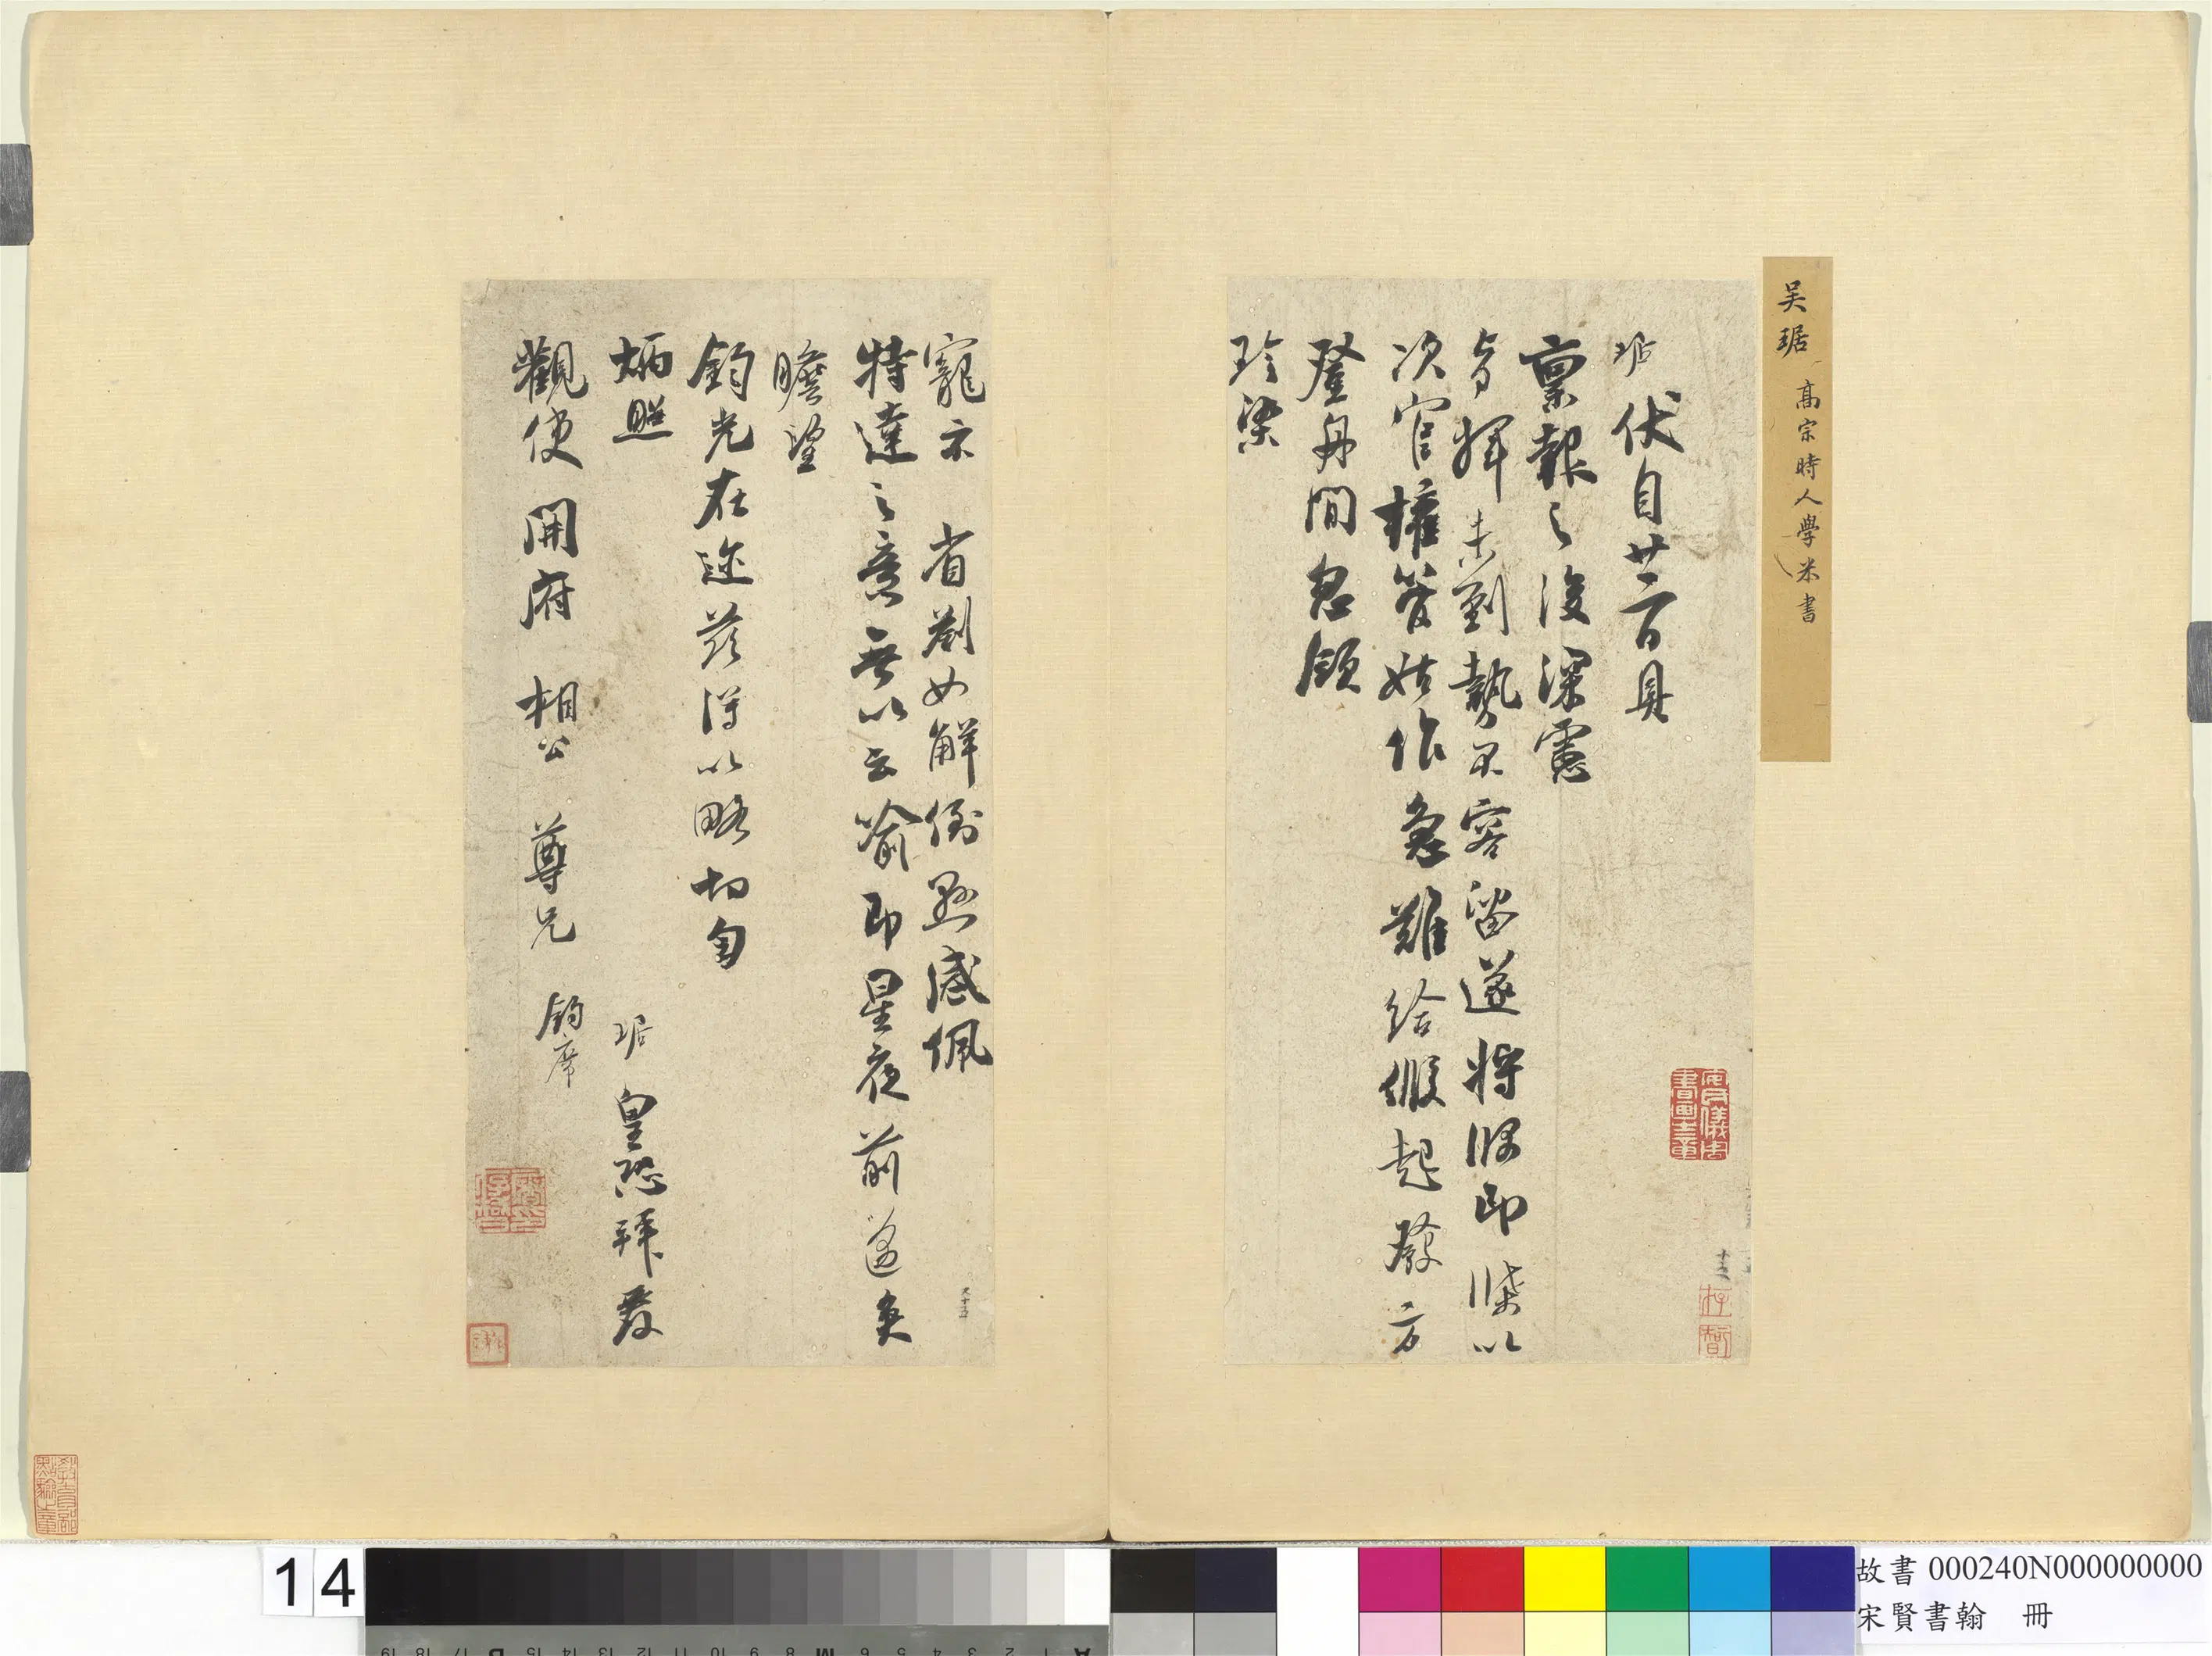 吳琚 高宗時人學米書
琚伏自廿二日具
稟報之後深慮
指揮未到勢不容留遂將阝即牒以
次官權管始作急難給假起發方
登舟間忽領
珍染
寵示 省劄如解倒懸感佩
特達之意無以云喻即星夜前邁矣
瞻望
鈞光在邇茲得以略切匄
炳照
琚皇恐拜覆
觀使 開府 相公 尊兄 鈞席
14
故書 000240N000000000
宋賢書翰 冊